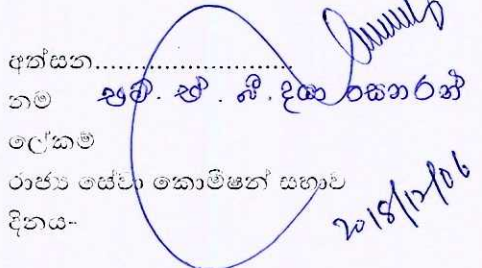 අත්සන............................
නම එච්. ඒ. බී. දයා සෙනරත්
ලේකම්
රාජ්‍ය සේවා කොමිෂන් සභාව
දිනය- 2018/12/06